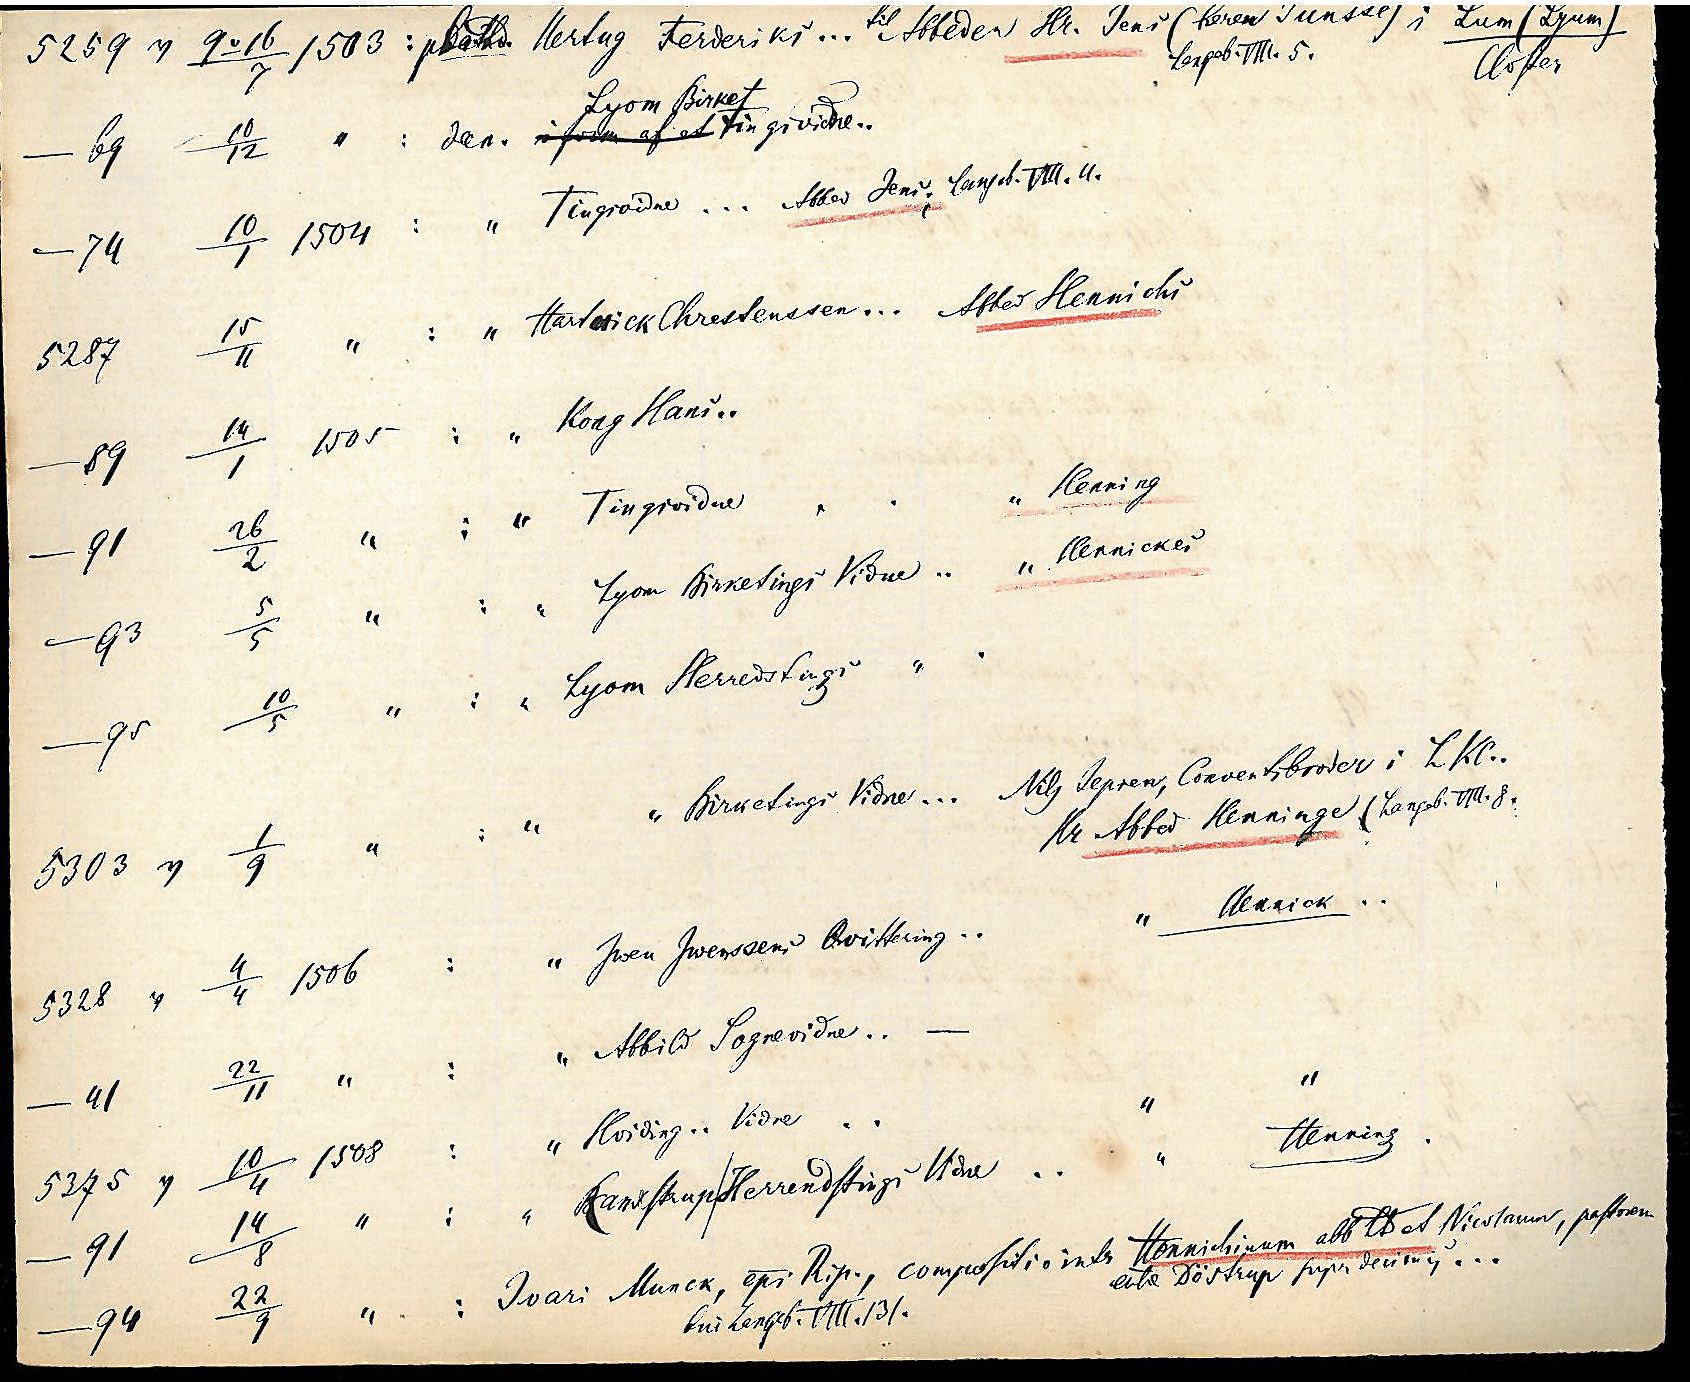 5259 v 9 o 16/7 1503 : plattd. Hertug Ferderiks ... til Abbeden Hr. Jens (heren Junsse) i Lum (Lyum)
Langeb. VIII. 5. Closter
Lyom Birket
— 69 10/12 " : dan. i form af et Tingsvidne..
— 74 10/1 1504 : " Tingsvidne ... Abbed Jens; Langeb. VIII. 4.
5287 15/11 " : " Hartwick Chrestenssen ... Abbed Hennichs
— 89 14/1 1505 : " Kong Hans..
— 91 26/2 " : " Tingsvidne . . " Henning
— 93 5/5 " : " Lyom Birketings Vidne .. " Hennickes
— 95 10/5 " : " Lyom Herredstings " .
5303 v 1/9 " : " " Birketings Vidne ... Nils Jepsen, Conventsbroder i L Kl..
Hr Abbed Henninge (Langeb. VIII. 8.
5328 v 4/4 1506 : " Jwen Jwenssens Qvittering .. " Hennick ..
— 41 22/11 " : " Abbild Sognevidne .. —
5375 v 10/4 1508 : " Hviding .. Vidne .. " "
— 91 14/8 " : " Randstrup Herrendstings Vidne .. " Henning .
— 94 22/9 " : Ivari Munck, epi Rip., compositio inter Hennichinum abb Lb et Nicolaum, pastorem
eccle Döstrup supr decimis ...
Langb. VIII. 131.